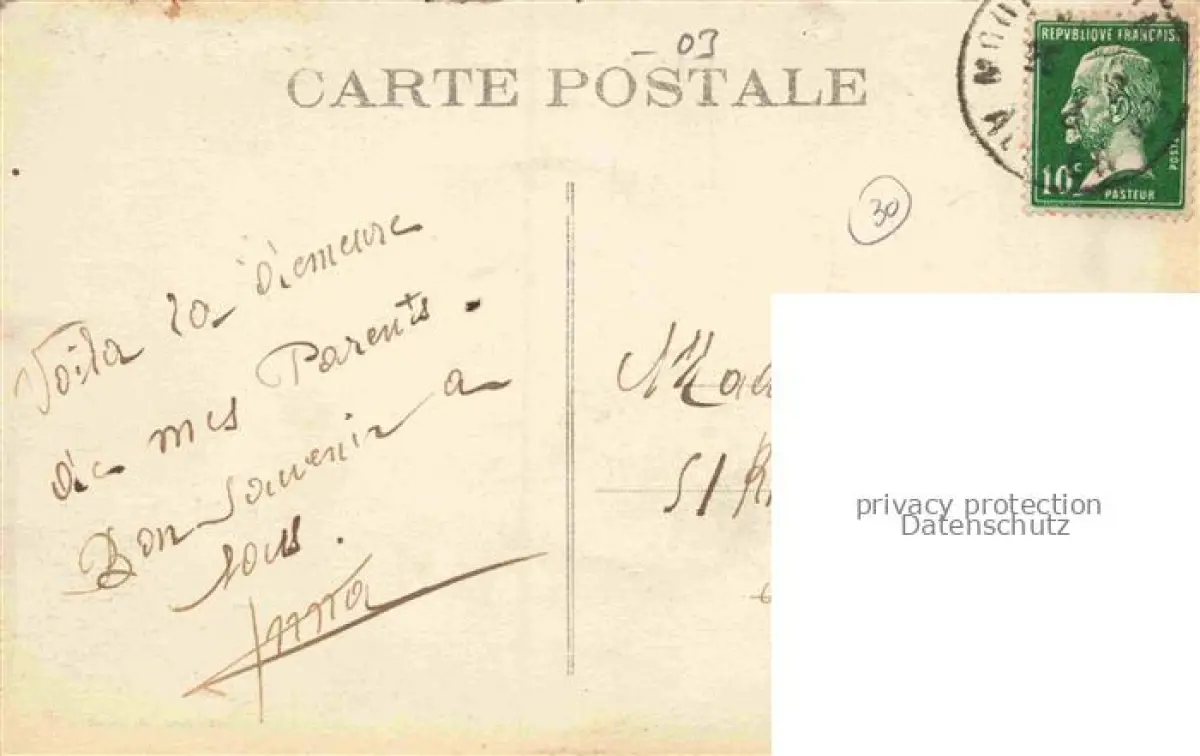 - 03
CARTE POSTALE
REPVBLIQUE FRANÇAISE
10c
POSTES
PASTEUR
30
Voila la demeure
de mes Parents.
Bon Souvenir a
tous.
Mad
51 R
privacy protection
Datenschutz